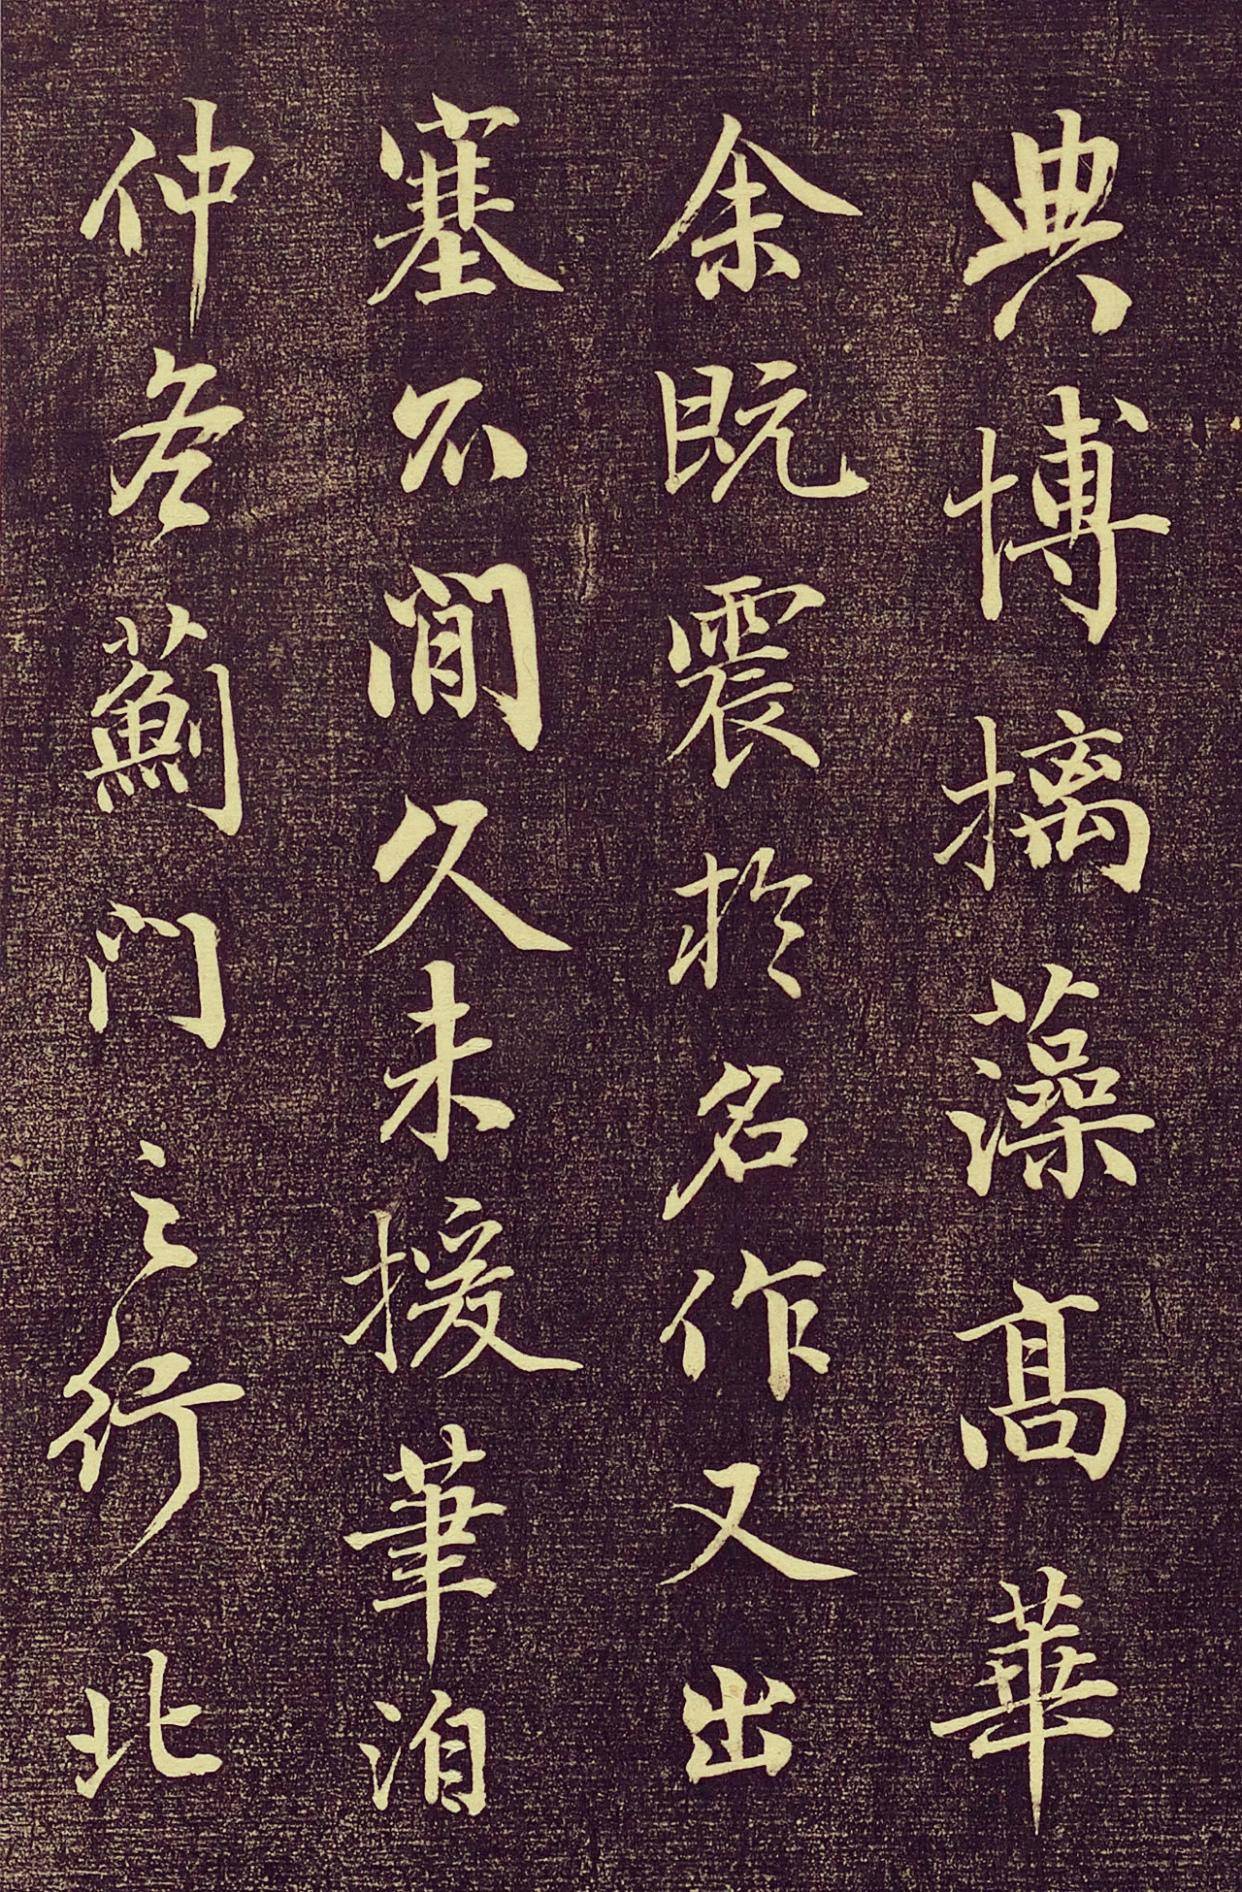 典博摛藻髙華
余既震於名作又出
塞不閒久未援筆洎
仲冬薊門之行北